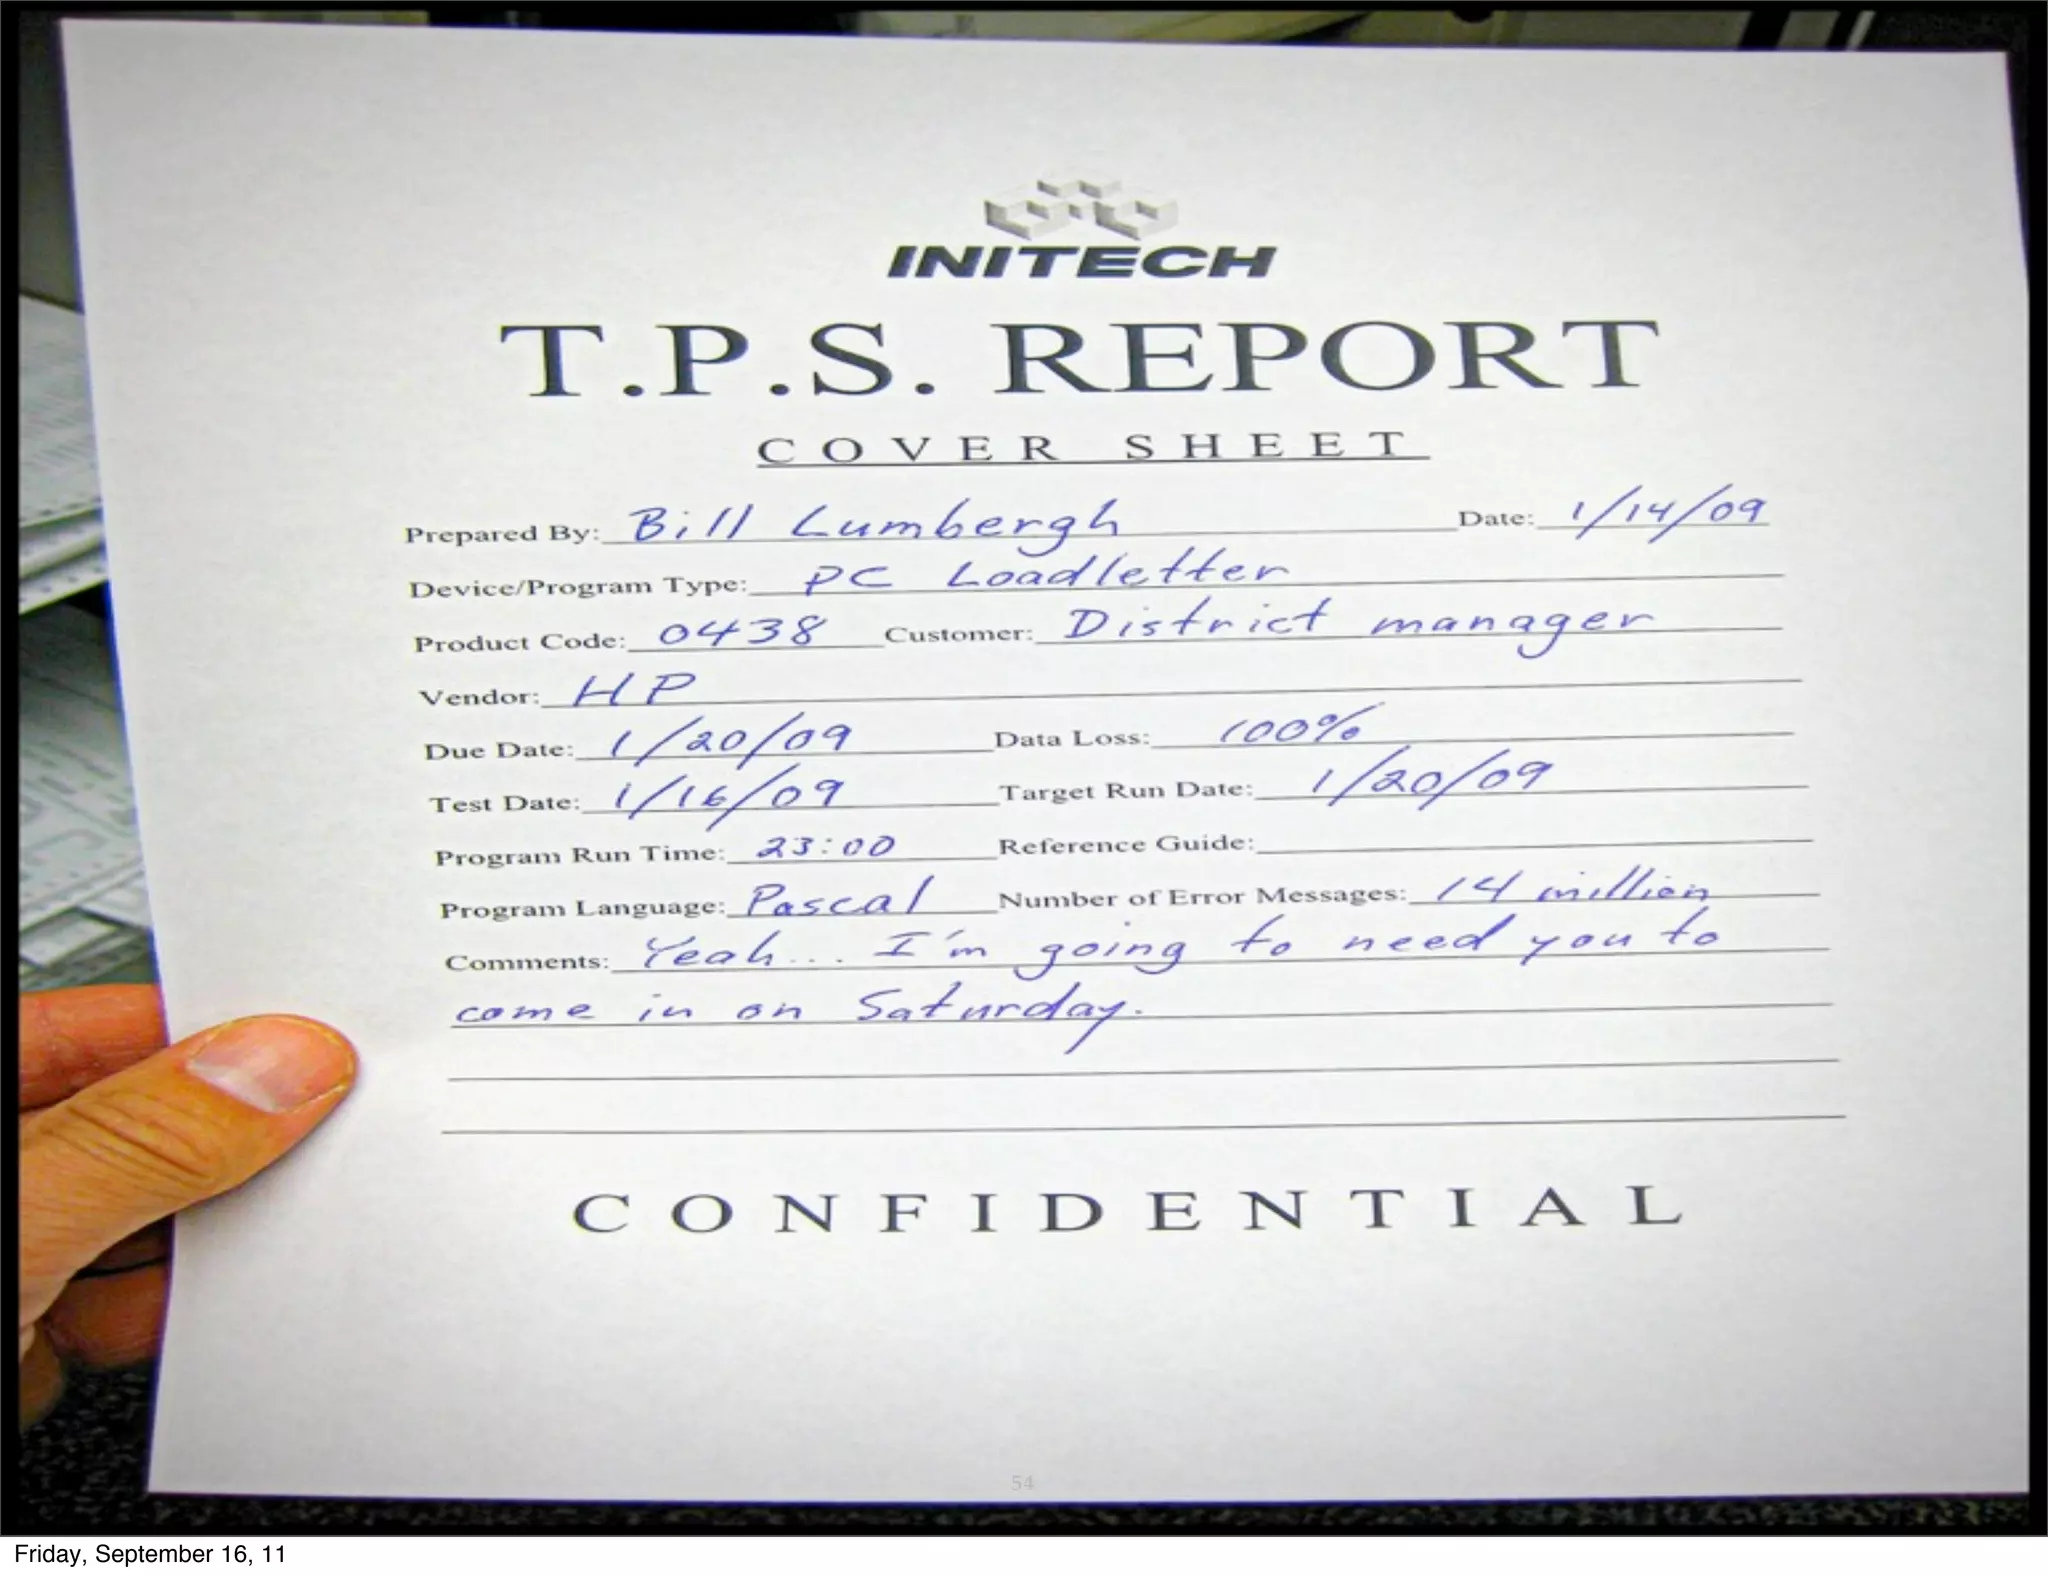 INITECH
T.P.S. REPORT
COVER SHEET
Prepared By: Bill Lumbergh Date: 1/14/09
Device/Program Type: PC Loadletter
Product Code: 0438 Customer: District manager
Vendor: HP
Due Date: 1/20/09 Data Loss: 100%
Test Date: 1/16/09 Target Run Date: 1/20/09
Program Run Time: 23:00 Reference Guide:
Program Language: Pascal Number of Error Messages: 14 million
Comments: Yeah... I'm going to need you to
come in on Saturday.
CONFIDENTIAL
54
Friday, September 16, 11